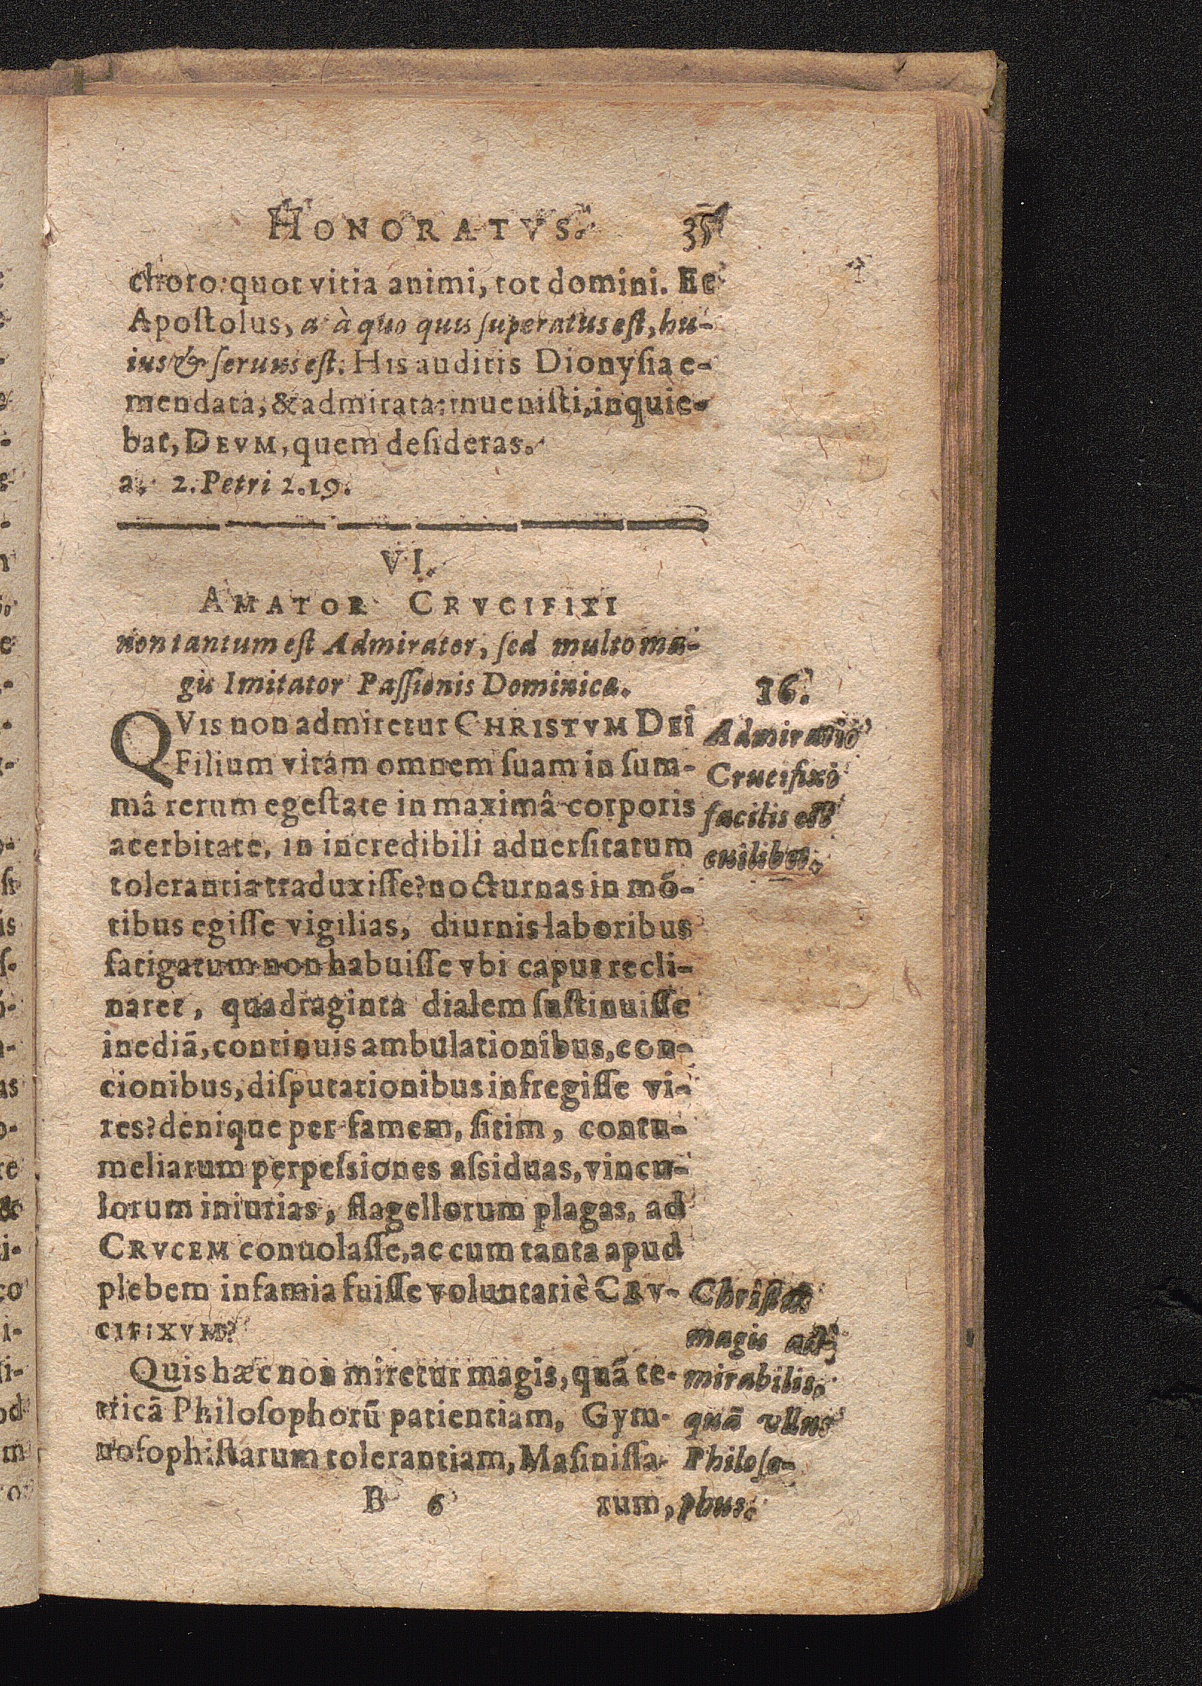 HONORATVS. 35
choro: quot vitia animi, tot domini. Et
Apoſtolus, a à quo quis ſuperatus eſt, hu-
ius & ſeruus eſt. His auditis Dionyſia e-
mendata, & admirata: inueniſti, inquie-
bat, DEVM, quem deſideras.
a. 2. Petri 2.19.
VI.
AMATOR CRVCIFIXI
non tantum est Admirator, ſed multo ma-
gis Imitator Paſſionis Dominicæ.
QVis non admiretur CHRISTVM DEI
Filium vitam omnem ſuam in ſum-
mâ rerum egeſtate in maximâ corporis
acerbitate, in incredibili aduerſitatum
tolerantia traduxiſſe? nocturnas in mō-
tibus egiſſe vigilias, diurnis laboribus
fatigatum non habuiſſe vbi caput recli-
naret, quadraginta dialem ſuſtinuiſſe
inediā, continuis ambulationibus, con-
cionibus, diſputationibus infregiſſe vi-
res? denique per famem, ſitim, contu-
meliarum perpeſsiones aſsiduas, vincu-
lorum iniurias, flagellorum plagas, ad
CRVCEM conuolaſſe, ac cum tanta apud
plebem infamia fuiſſe voluntariè CRV-
CIFIXVM?
Quis hæc non miretur magis, quā te-
tricā Philoſophorū patientiam, Gym-
noſophiſtarum tolerantiam, Maſiniſſa-
B 6 rum,
16.
Admiratio
Crucifixo
facilis eſt
cuilibet.
Chriſtus
magis ad-
mirabilis,
quā vllus
Philoſo-
phus.